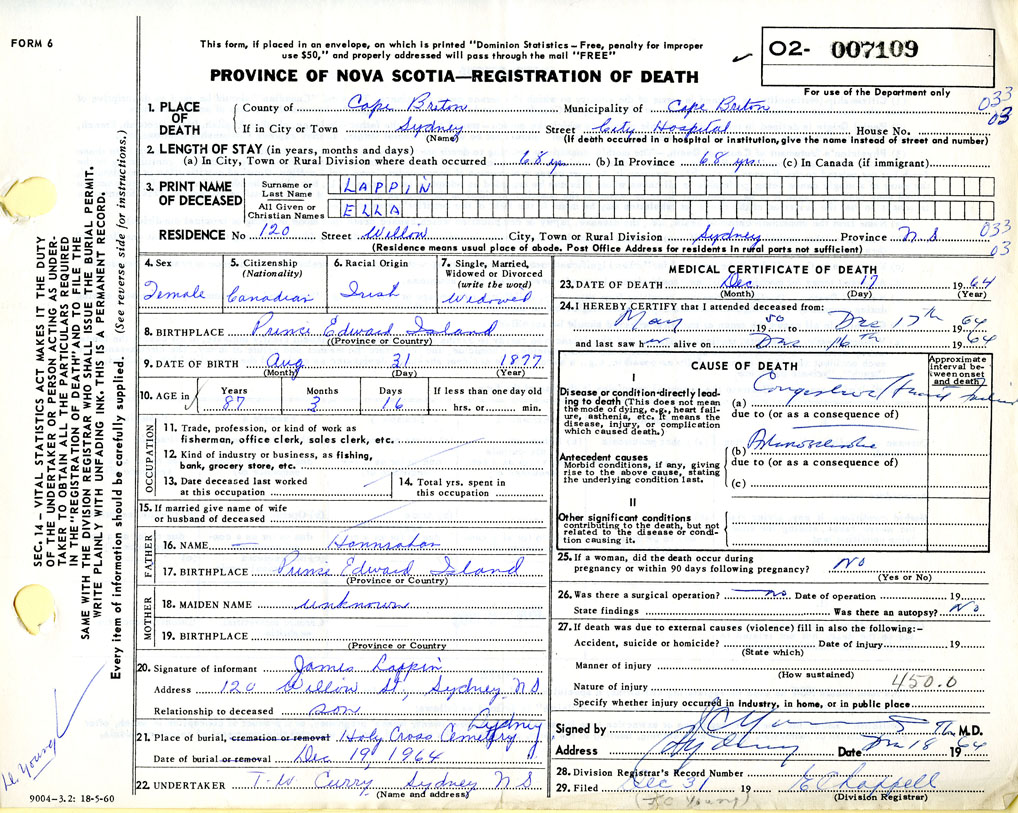 FORM 6
This form, if placed in an envelope, on which is printed "Dominion Statistics – Free, penalty for improper
use $50," and properly addressed will pass through the mail "FREE"
PROVINCE OF NOVA SCOTIA—REGISTRATION OF DEATH
02- 007109
For use of the Department only
033
03
1. PLACE OF DEATH
County of Cape Breton Municipality of Cape Breton
If in City or Town Sydney Street City Hospital House No.
(Name) (If death occurred in a hospital or institution, give the name instead of street and number)
2. LENGTH OF STAY (in years, months and days)
(a) In City, Town or Rural Division where death occurred 68 yr. (b) In Province 68 yrs. (c) In Canada (if immigrant)
3. PRINT NAME OF DECEASED
Surname or Last Name LAPPIN
All Given or Christian Names ELLA
033
03
RESIDENCE No 120 Street Willow City, Town or Rural Division Sydney Province N S
(Residence means usual place of abode. Post Office Address for residents in rural parts not sufficient)
4. Sex Female
5. Citizenship (Nationality) Canadian
6. Racial Origin Irish
7. Single, Married, Widowed or Divorced (write the word) Widowed
8. BIRTHPLACE Prince Edward Island
((Province or Country)
9. DATE OF BIRTH Aug 31 1877
(Month) (Day) (Year)
10. AGE in Years 87 Months 3 Days 16 If less than one day old hrs. or min.
OCCUPATION
11. Trade, profession, or kind of work as
fisherman, office clerk, sales clerk, etc.
12. Kind of industry or business, as fishing,
bank, grocery store, etc.
13. Date deceased last worked
at this occupation
14. Total yrs. spent in
this occupation
15. If married give name of wife
or husband of deceased
FATHER
16. NAME — Hannrahan
17. BIRTHPLACE Prince Edward Island
(Province or Country)
MOTHER
18. MAIDEN NAME unknown
19. BIRTHPLACE
(Province or Country
20. Signature of informant James Lappin
Address 120 Willow St, Sydney N.S.
Relationship to deceased son
21. Place of burial, cremation or removal Holy Cross Cemetery Sydney
Date of burial or removal Dec 19, 1964
22. UNDERTAKER T. W. Curry Sydney NS
(Name and address)
MEDICAL CERTIFICATE OF DEATH
23. DATE OF DEATH Dec 17 1964
(Month) (Day) (Year)
24. I HEREBY CERTIFY that I attended deceased from:
May 1950 to Dec 17th 1964
and last saw her alive on Dec 16th 1964
CAUSE OF DEATH
Approximate interval between onset and death
I
Disease or condition directly leading to death (This does not mean
the mode of dying, e.g., heart failure, asthenia, etc. It means the
disease, injury, or complication
which caused death.)
(a) Congestive Heart Failure
due to (or as a consequence of)
Antecedent causes
Morbid conditions, if any, giving
rise to the above cause, stating
the underlying condition last.
(b)
due to (or as a consequence of)
(c)
II
Other significant conditions
contributing to the death, but not
related to the disease or condition causing it.
25. If a woman, did the death occur during
pregnancy or within 90 days following pregnancy? NO
(Yes or No)
26. Was there a surgical operation? no Date of operation 19
State findings Was there an autopsy? No
27. If death was due to external causes (violence) fill in also the following:–
Accident, suicide or homicide? Date of injury 19
(State which)
Manner of injury
(How sustained)
Nature of injury 450.0
Specify whether injury occurred in industry, in home, or in public place
Signed by M.D.
Address Sydney Date Dec 18 1964
28. Division Registrar's Record Number
29. Filed Dec 31 19 E Chappell
(Division Registrar)
SEC. 14 – VITAL STATISTICS ACT MAKES IT THE DUTY
OF THE UNDERTAKER OR PERSON ACTING AS UNDER-
TAKER TO OBTAIN ALL THE PARTICULARS REQUIRED
IN THE "REGISTRATION OF DEATH" AND TO FILE THE
SAME WITH THE DIVISION REGISTRAR WHO SHALL ISSUE THE BURIAL PERMIT.
WRITE PLAINLY WITH UNFADING INK. THIS IS A PERMANENT RECORD.
Every item of information should be carefully supplied. (See reverse side for instructions.)
9004-3.2: 18-5-60